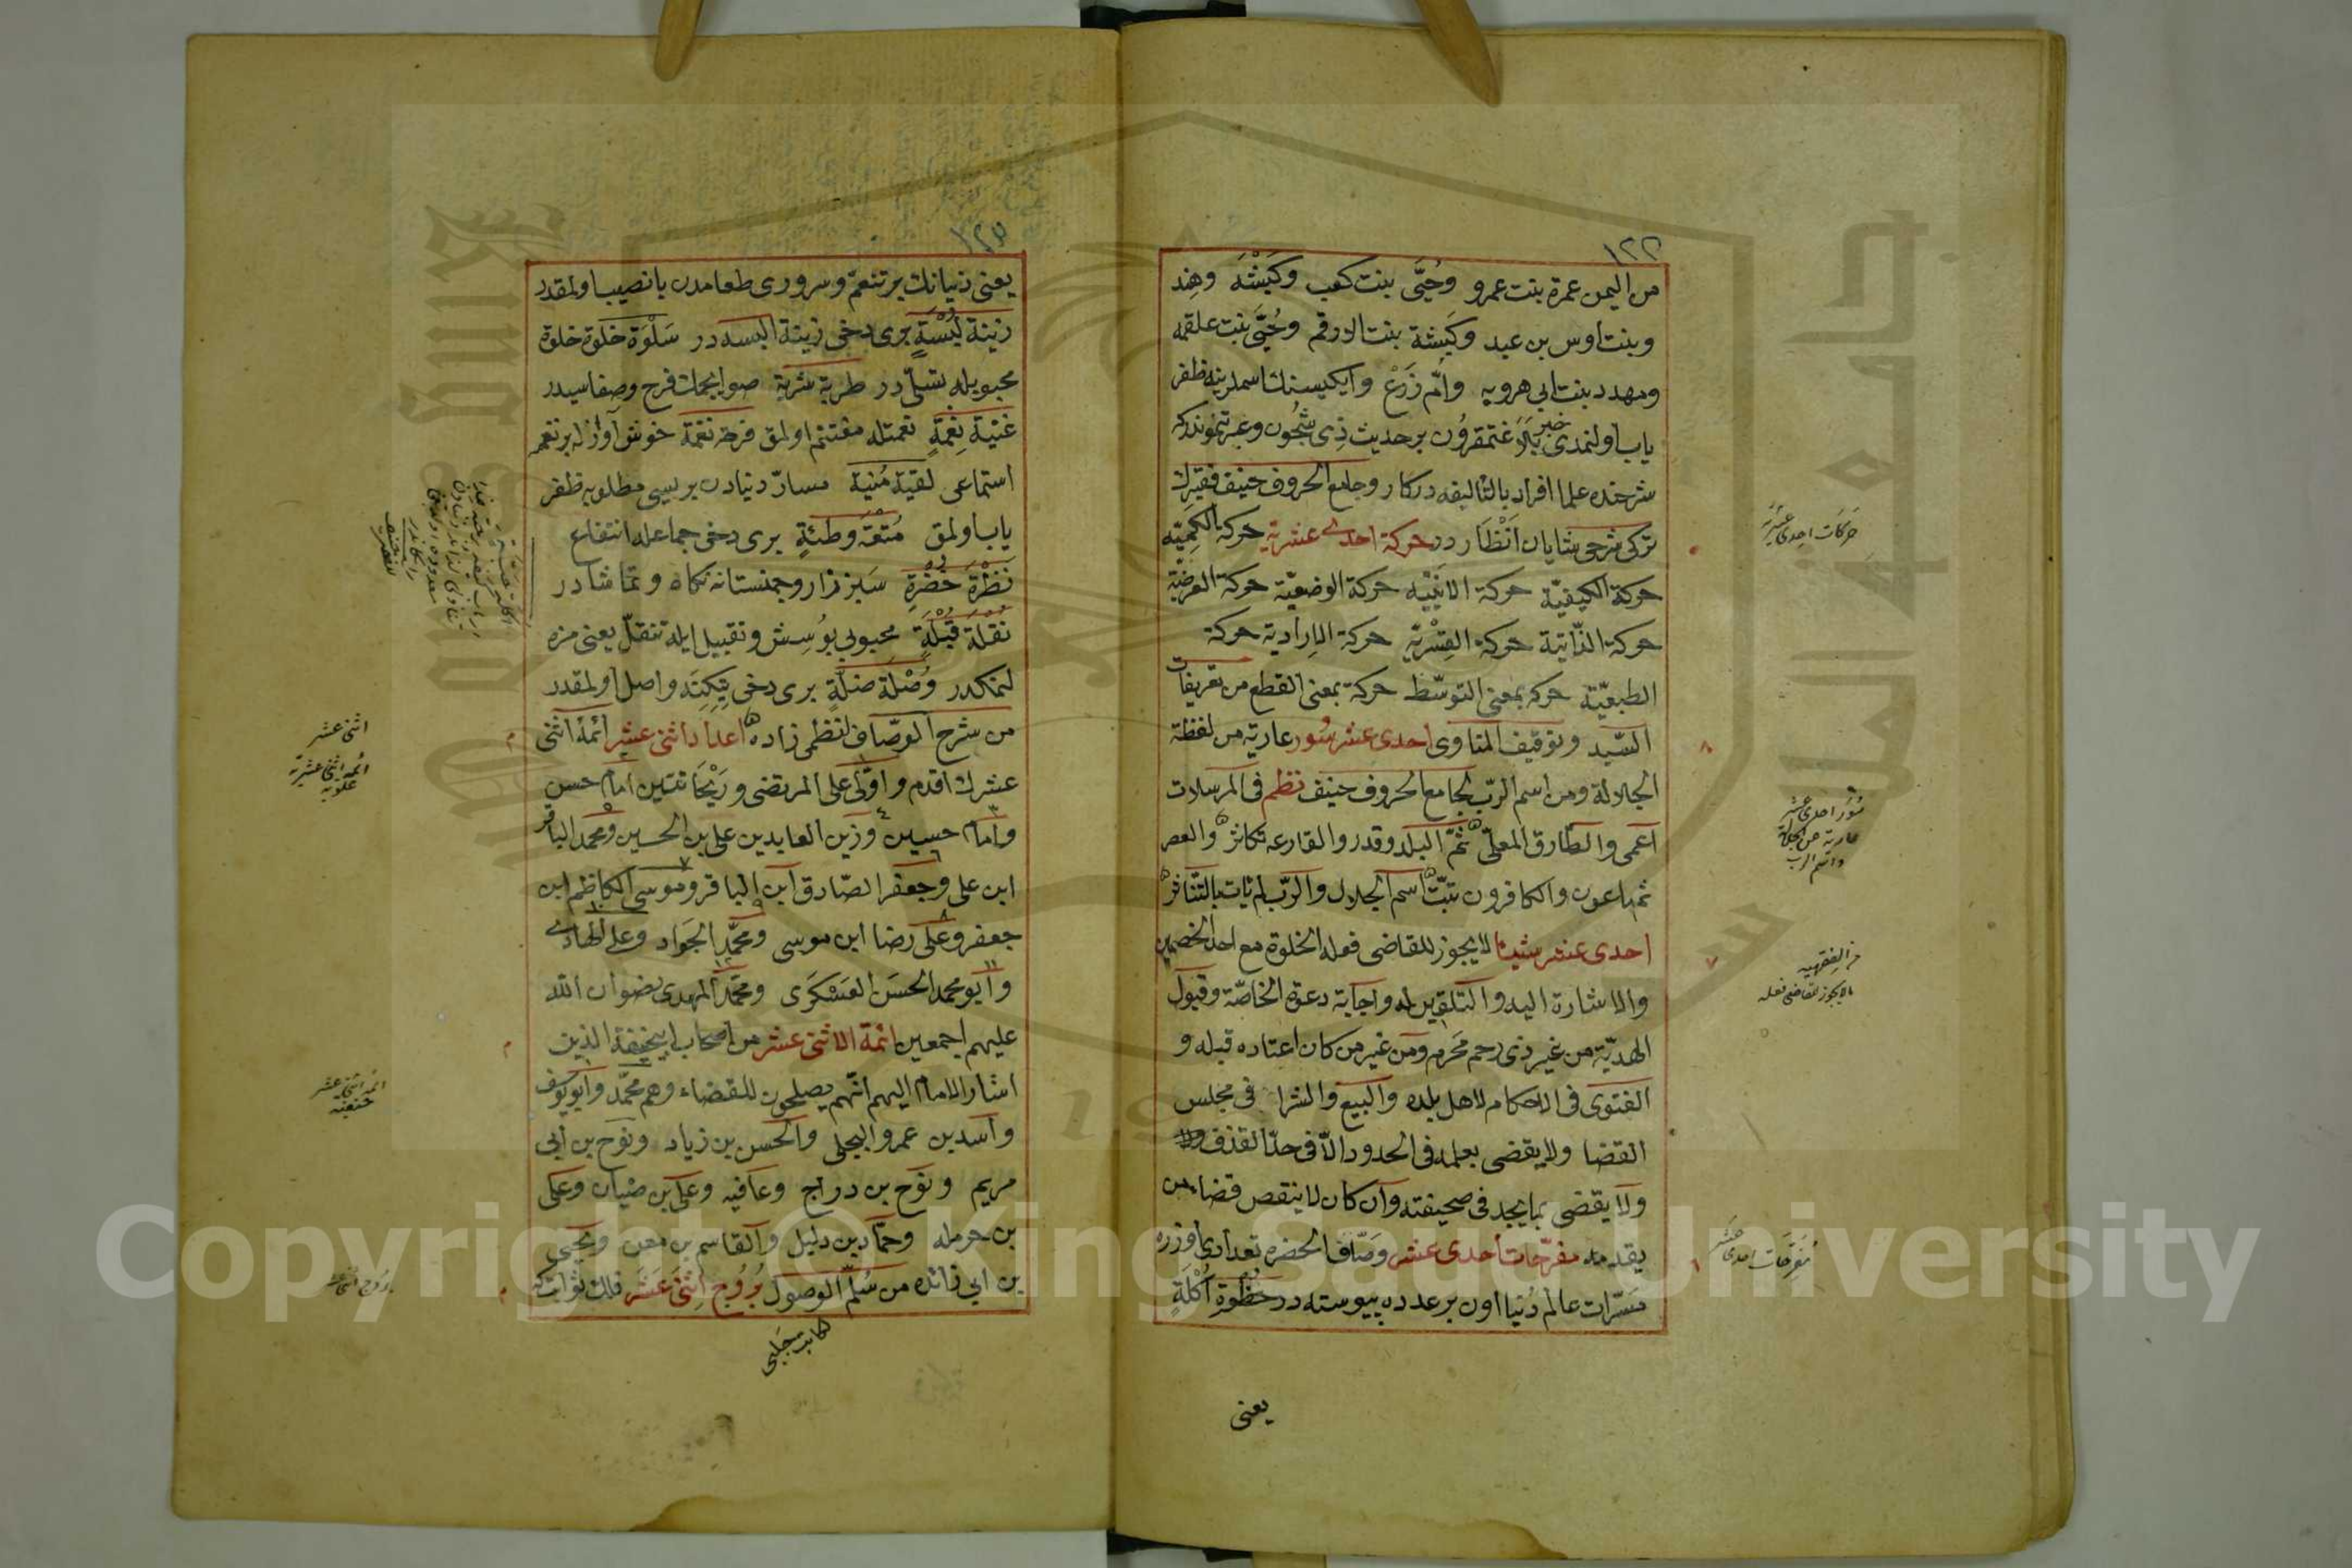 ١٢٢
من اليمن عمرة بنت عمرو وحُيَّى بنت كعب وكَبْشَه وهند
وبنت اوس بن عبد وكبشة بنت الارقم وحُيَّى بنت علقمه
ومهدد بنت ابي هرويه وامّ زَرْع وايكيسنك اسملرينه ظفر
ياب اولنمدى خبر
شرحنده علما افراد بالتأليفه دركار وجامع الحروف حنيف فقيرك
تركى شرحى شايان انظار در حركة احدى عشرية حركة الكميّه
حركة الكيفيّة حركة الاينيّه حركة الوضعيّة حركة العرضيّة
حركة الذّاتية حركة القسْريّة حركة الإراديّة حركة
الطبعيّة حركه بمعنى التوسّط حركة بمعنى القطع من تعريفات
السّيد وتوقيف المناوى احدى عشر سُور عارية من لفظة
الجلالة ومن اسم الربّ لجامع الحروف حنيف نظم فى المرسلات
اعمى والطّارق المعلّى ثمّ البلد وقدر والقارعه تكاثر والعصر
ثم ماعون والكافرون تبّت اسم الجلال والرّب لم يات بالتنافر
احدى عشر شيئا لا يجوز للقاضى فعله الخلوة مع احد الخصمين
والاشارة اليه والتلقين له واجابة دعوة الخاصّة وقبول
الهديّة من غير ذى رحم محرم ومن غير من كان اعتاده قبله و
الفتوى فى الاحكام لاهل بلده والبيع والشرا فى مجلس
القضا ولا يقضى بعلمه فى الحدود الّا فى حدّ القذف
ولا يقضى بما يجد فى صحيفته وان كان لا ينقص قضا من
يقدمه مفرّحات احدى عشر وصّاف الحضره تعدادى اوزره
مسرّات عالم دُنيا اون بر عدده پيوسته در حظوة اكلةٍ
يعنى
حركات احدى عشريّة
سُوَر احدى عشر
عارية من الجلالة
واسم الرب
من الفقهيه
ما لا يجوز للقاضى فعله
مُفرّحات احدى عشر
١٢٣
يعنى دنيانك بر تنعم وسرورى طعامدن با نصيب اولمقدر
زينة لُبْسَةٍ برى دخى زينة البسه در سَلْوَة خَلْوَة خلوة
محبوبله تسلّى در طربة شربة صو ايچمك فرح وصفاسيدر
غنية نِعْمَةٍ نعمتله مغتنم اولمق فرحة نغمة خوش آوازله بر نغمه
استماعى لقية مُنية مسارّ دنيادن بريسى مطلوبه ظفر
ياب اولمق مُتْعَة وطئةٍ برى دخى جماعله انتفاع
نَظْرَة خُضْرَةٍ سبزه زار وچمنستانه نكاه وتماشا در
نُقْلَة قُبْلَةٍ محبوبى بوُسِش وتقبيل ايله تنقّل يعنى مزه
لنمكدر وُصْلَة صِلَةٍ برى دخى واصل اولمقدر
من شرح الوصّاف لنظمى زاده اعداد اثنى عشر ائمّهٔ اثنى
عشرك اقدم واوّلى على المرتضى وريْحانتين امام حسن
وامام حسين وزين العابدين على بن الحسين ومحمد الباقر
ابن على وجعفر الصّادق ابن الباقر وموسى الكاظم ابن
جعفر وعلى رضا ابن موسى ومحمّد الجواد وعلى الهادى
وابو محمد الحسن العسكرى ومحمّد المهدى رضوان الله
عليهم اجمعين ائمة الاثنى عشر من اصحاب ابيحنيفة الذين
اشار الامام اليهم انّهم يصلحون للقضاء وهم محمّد وابويوسف
واسد بن عمرو البجلى والحسن بن زياد ونوح بن ابى
مريم ونوح بن دراج وعافيه وعلى بن ضبيان وعلى
بن حرمله وحمّاد بن دليل والقاسم بن معن ويحيى
بن ابى زائده من سُلّم الوصول بُرُوج اِثنى عَشَر فلك ثوابت
كاتب جلبى
اثنى عشر
ائمهٔ اثنى عشرية
علويه
ائمهٔ اثنى عشر
حنفيه
بروج اثنى عشر
Copyright © King Saud University